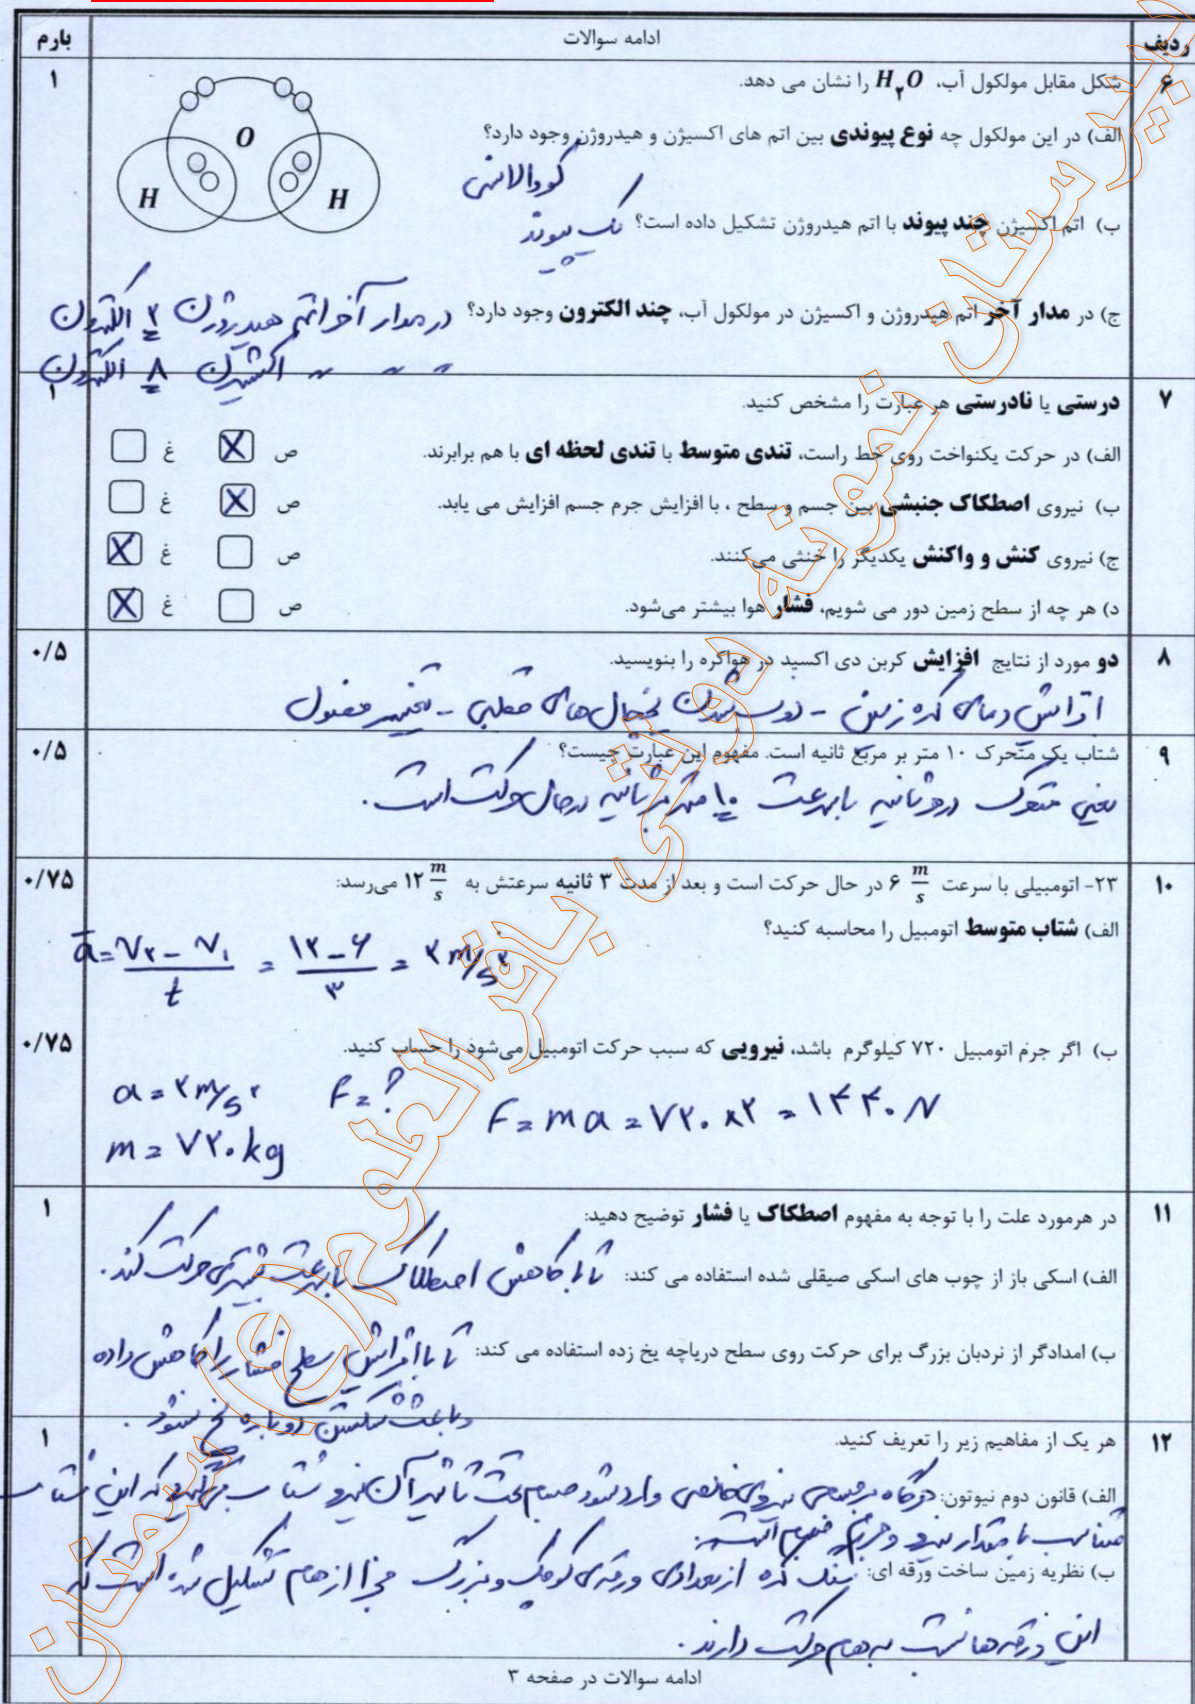 ردیف ادامه سوالات بارم
۶ شکل مقابل مولکول آب، H۲O را نشان می دهد. ۱
O
H H
الف) در این مولکول چه نوع پیوندی بین اتم های اکسیژن و هیدروژن وجود دارد؟
کووالانسی
ب) اتم اکسیژن چند پیوند با اتم هیدروژن تشکیل داده است؟ یک پیوند
ج) در مدار آخر اتم هیدروژن و اکسیژن در مولکول آب، چند الکترون وجود دارد؟ در مدار آخر اتم هیدروژن ۲ الکترون
〃 〃 〃 اکسیژن ۸ الکترون
۷ درستی یا نادرستی هر عبارت را مشخص کنید. ۱
الف) در حرکت یکنواخت روی خط راست، تندی متوسط با تندی لحظه ای با هم برابرند. ص X غ
ب) نیروی اصطکاک جنبشی بین جسم و سطح ، با افزایش جرم جسم افزایش می یابد. ص X غ
ج) نیروی کنش و واکنش یکدیگر را خنثی می‌کنند. ص غ X
د) هر چه از سطح زمین دور می شویم، فشار هوا بیشتر می‌شود. ص غ X
۸ دو مورد از نتایج افزایش کربن دی اکسید در هواکره را بنویسید. ۰/۵
افزایش دمای کره زمین - ذوب شدن یخچال های قطبی - تغییر فصول
۹ شتاب یک متحرک ۱۰ متر بر مربع ثانیه است. مفهوم این عبارت چیست؟ ۰/۵
یعنی متحرک در هر ثانیه با سرعت ۱۰ متر بر ثانیه در حال حرکت است.
۱۰ ۲۳- اتومبیلی با سرعت ۶ m/s در حال حرکت است و بعد از مدت ۳ ثانیه سرعتش به ۱۲ m/s می‌رسد: ۰/۷۵
الف) شتاب متوسط اتومبیل را محاسبه کنید؟
ā = (V۲ - V۱)/t = (۱۲-۶)/۳ = ۲ m/s۲
ب) اگر جرم اتومبیل ۷۲۰ کیلوگرم باشد، نیرویی که سبب حرکت اتومبیل می‌شود را حساب کنید. ۰/۷۵
a = ۲ m/s۲ F = ? F = ma = ۷۲۰ × ۲ = ۱۴۴۰ N
m = ۷۲۰ kg
۱۱ در هرمورد علت را با توجه به مفهوم اصطکاک یا فشار توضیح دهید: ۱
الف) اسکی باز از چوب های اسکی صیقلی شده استفاده می کند: تا با کاهش اصطکاک با سرعت بیشتری حرکت کند.
ب) امدادگر از نردبان بزرگ برای حرکت روی سطح دریاچه یخ زده استفاده می کند: تا با افزایش سطح فشار را کاهش داده
و باعث شکستن دوباره یخ نشود.
۱۲ هر یک از مفاهیم زیر را تعریف کنید. ۱
الف) قانون دوم نیوتون: هرگاه بر جسمی نیروی خالصی وارد شود جسم تحت تاثیر آن نیرو شتاب می گیرد که این شتاب
متناسب با مقدار نیرو و جرم جسم است.
ب) نظریه زمین ساخت ورقه ای: سنگ کره از تعدادی ورقه ی کوچک و بزرگ مجزا از هم تشکیل شده است که
این ورقه ها نسبت به هم حرکت دارند.
ادامه سوالات در صفحه ۳
دبیرستان نمونه دولتی باقرالعلوم (ع) سمنان